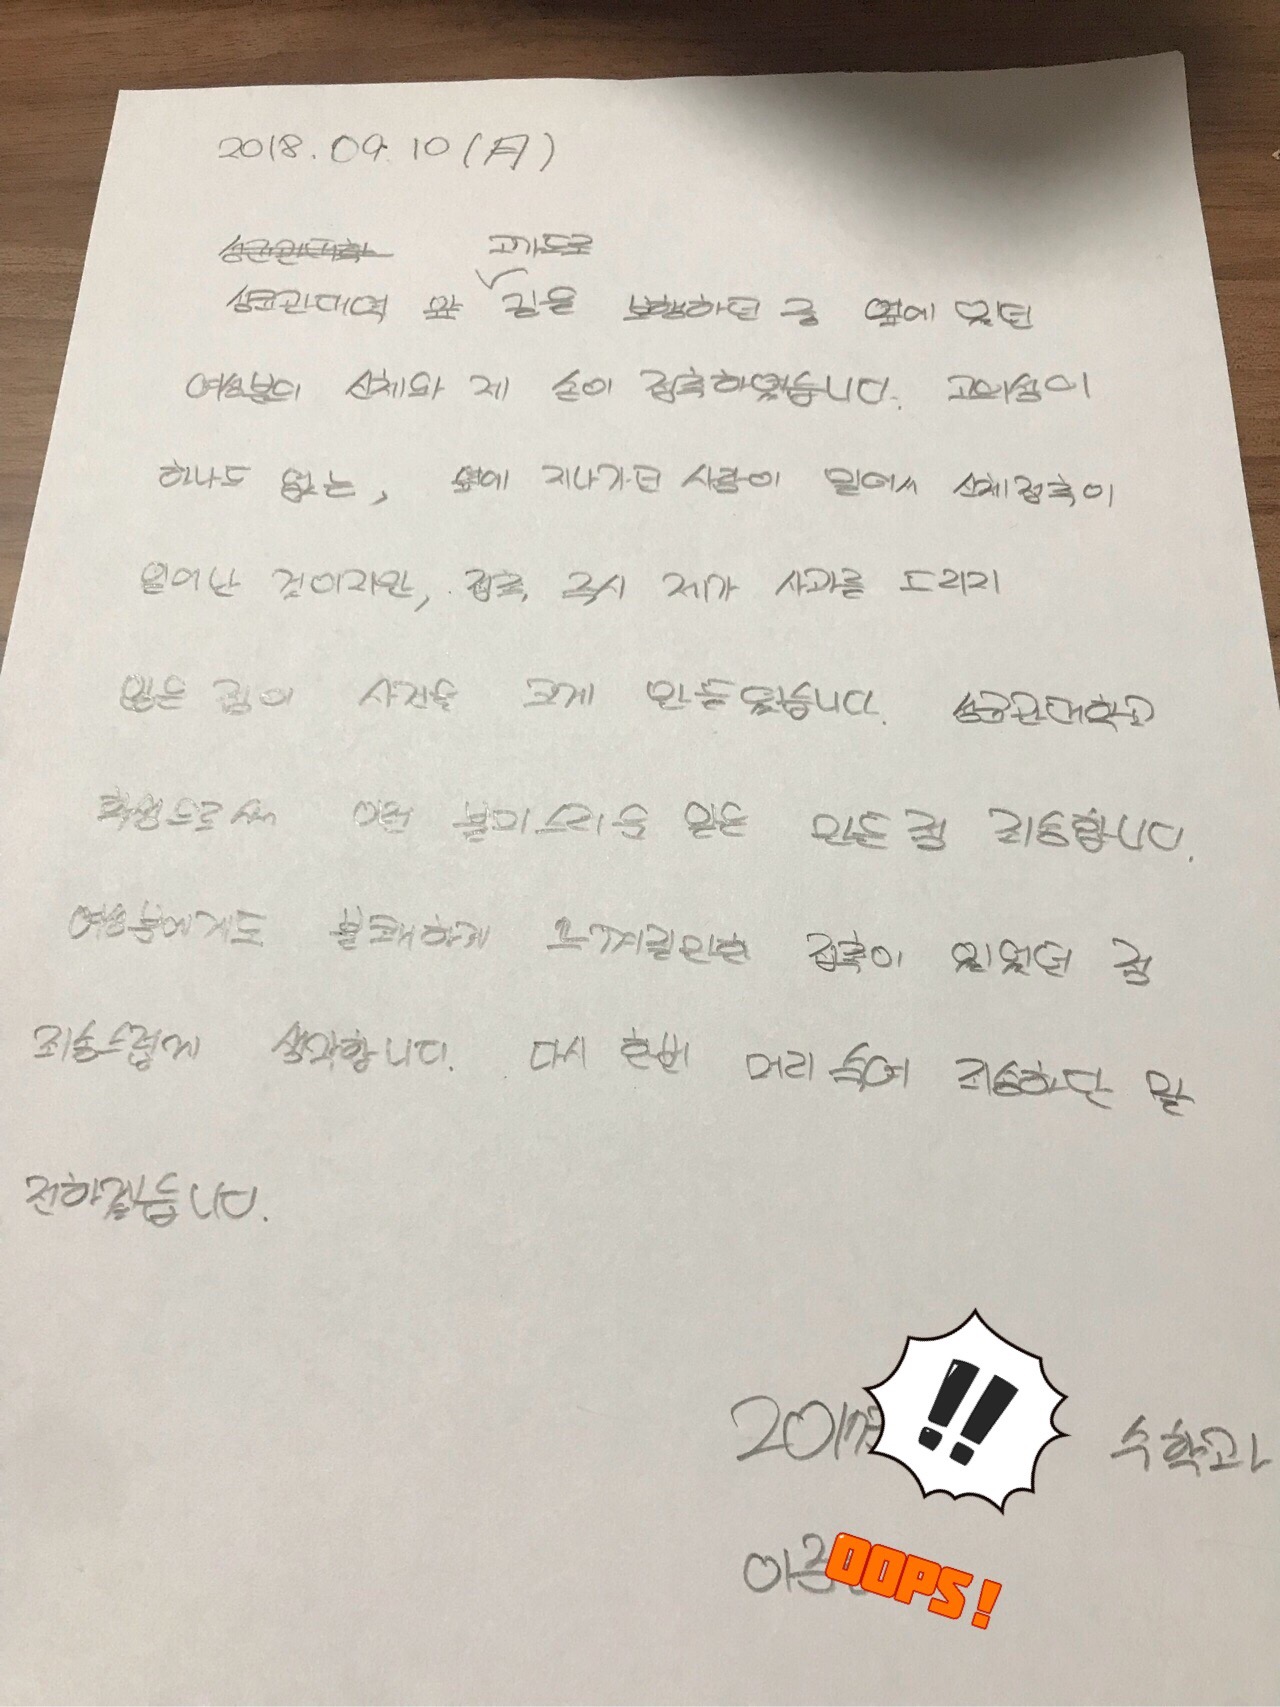 2018. 09. 10 (月)
성균관대학 고가도로
성균관대역 앞 길을 보행하던 중 옆에 있던
여성분의 신체와 제 손이 접촉하였습니다. 고의성이
하나도 없는, 옆에 지나가던 사람이 밀어서 신체접촉이
일어난 것이지만, 접촉 즉시 제가 사과를 드리지
않은 점이 사건을 크게 만들었습니다. 성균관대학교
학생으로서 이런 불미스러운 일을 만든 점 죄송합니다.
여성분에게도 불쾌하게 느껴질만한 접촉이 있었던 점
죄송스럽게 생각합니다. 다시 한번 머리 숙여 죄송하단 말
전하겠습니다.
!!
수학과
OOPS!